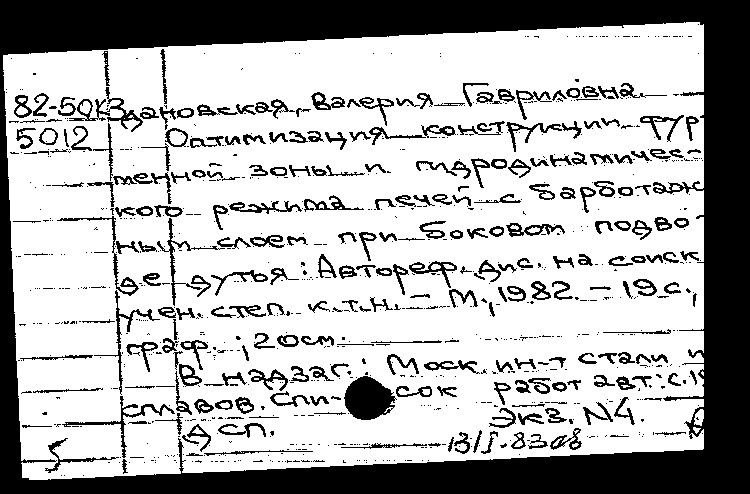 82-50К Здановская, Валерия Гавриловна.
5012 Оптимизация конструкции фур-
менной зоны и гидродинамичес-
кого режима печей с барботаж
ным слоем при боковом подво-
де дутья: Автореф. дис. на соиск
учен. степ. к.т.н. - М., 1982. - 19 с.,
граф.; 20см.
В надзаг.: Моск. ин-т стали и
сплавов. Список работ авт.: с. 19
ДСП. Экз. N4.
5 13/I-83